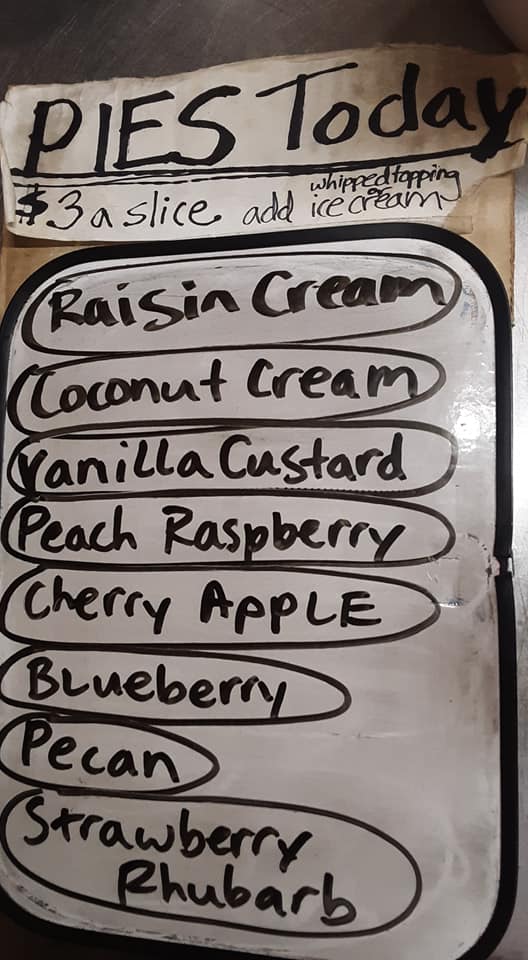 PIES Today
$3 a slice add whipped topping or ice cream
Raisin Cream
Coconut Cream
Vanilla Custard
Peach Raspberry
Cherry APPLE
BLueberry
Pecan
Strawberry
Rhubarb